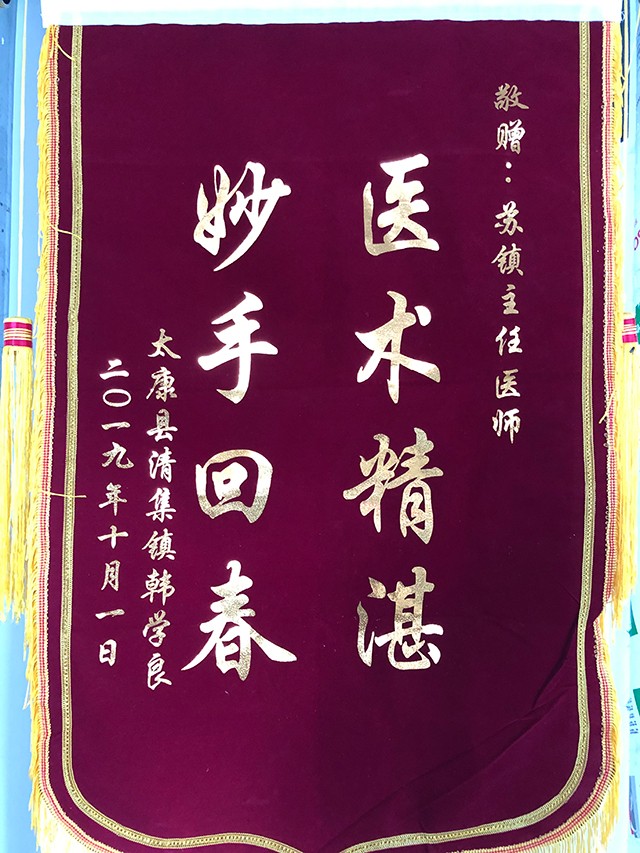 敬赠：苏镇主任医师
医术精湛
妙手回春
太康县清集镇韩学良
二〇一九年十月一日